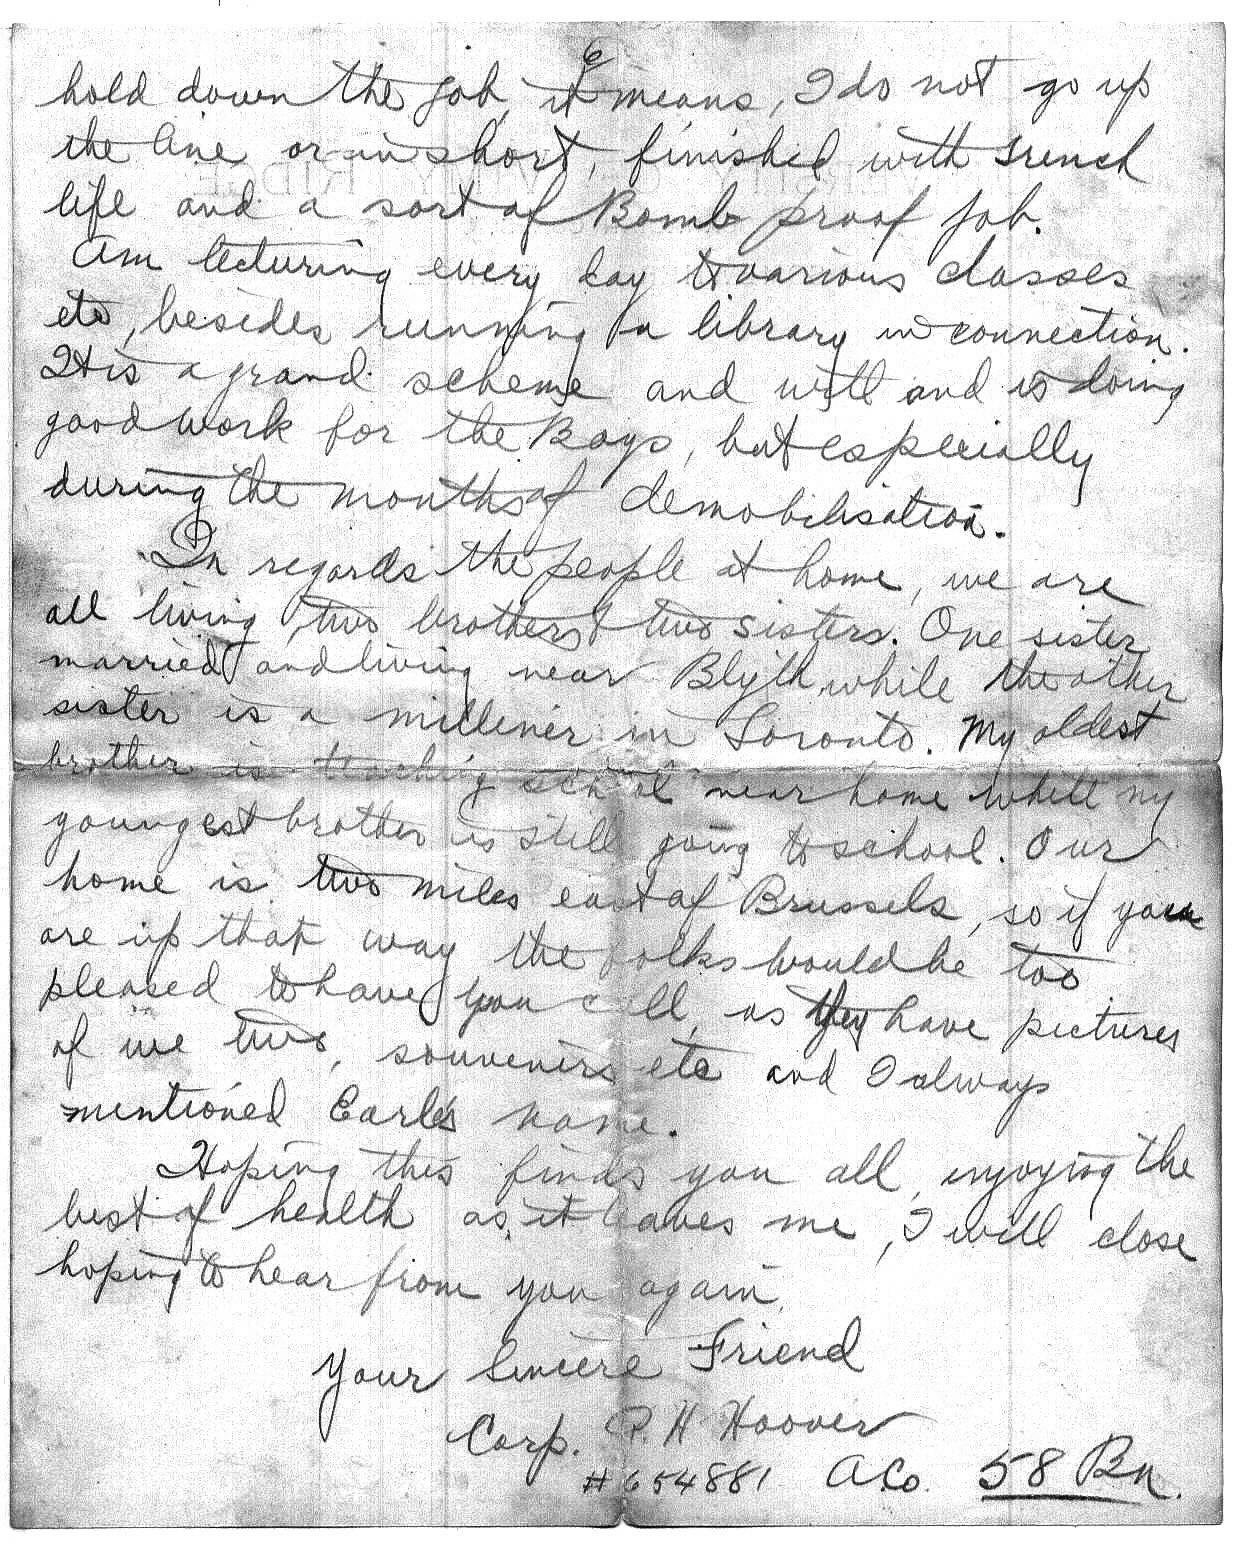 6
hold down the job, it means, I do not go up
the line or in short, finished with trench
life and a sort of Bomb proof job.
Am lecturing every day to various classes
etc, besides running a library in connection.
It is a grand scheme and will and is doing
good work for the Boys, but especially
during the months of demobilisation.
In regards the people at home, we are
all living, two brothers & two sisters. One sister
married and living near Blyth, while the other
sister is a milliner in Toronto. My oldest
brother is teaching school near home while my
youngest brother is still going to school. Our
home is two miles east of Brussels, so if you
are up that way the folks would be too
pleased to have you call, as they have pictures
of we two, souvenirs etc and I always
mentioned Earle's name.
Hoping this finds you all, enjoying the
best of health as it leaves me, I will close
hoping to hear from you again,
Your Sincere Friend
Corp. P. H Hoover
#654881 A Co. 58 Bn.